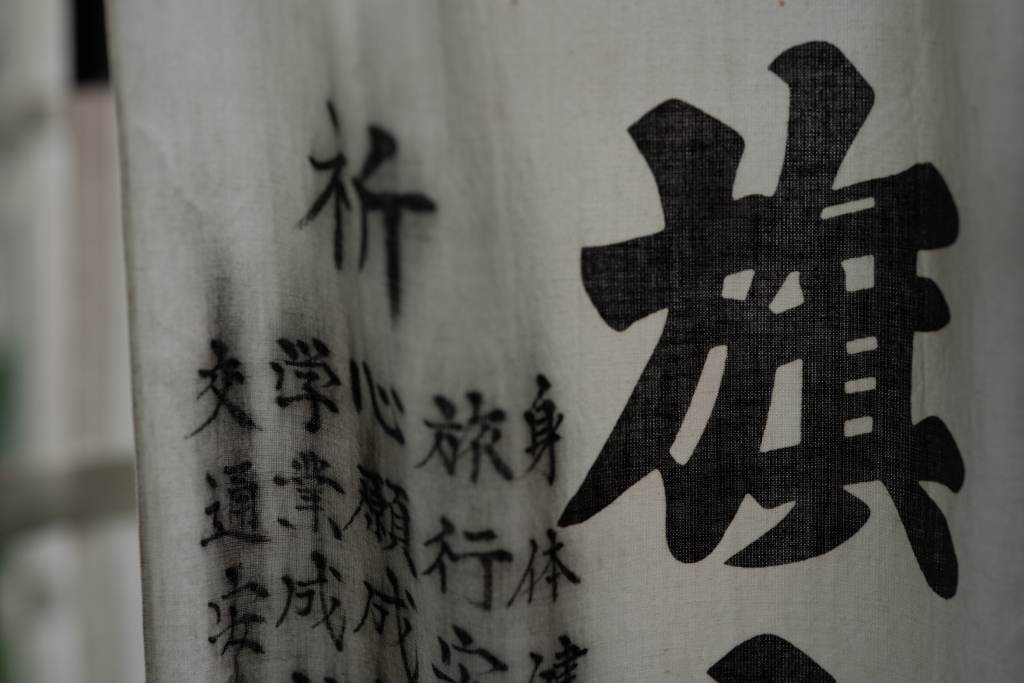 旗
祈
身体健
旅行安
心願成
学業成
交通安